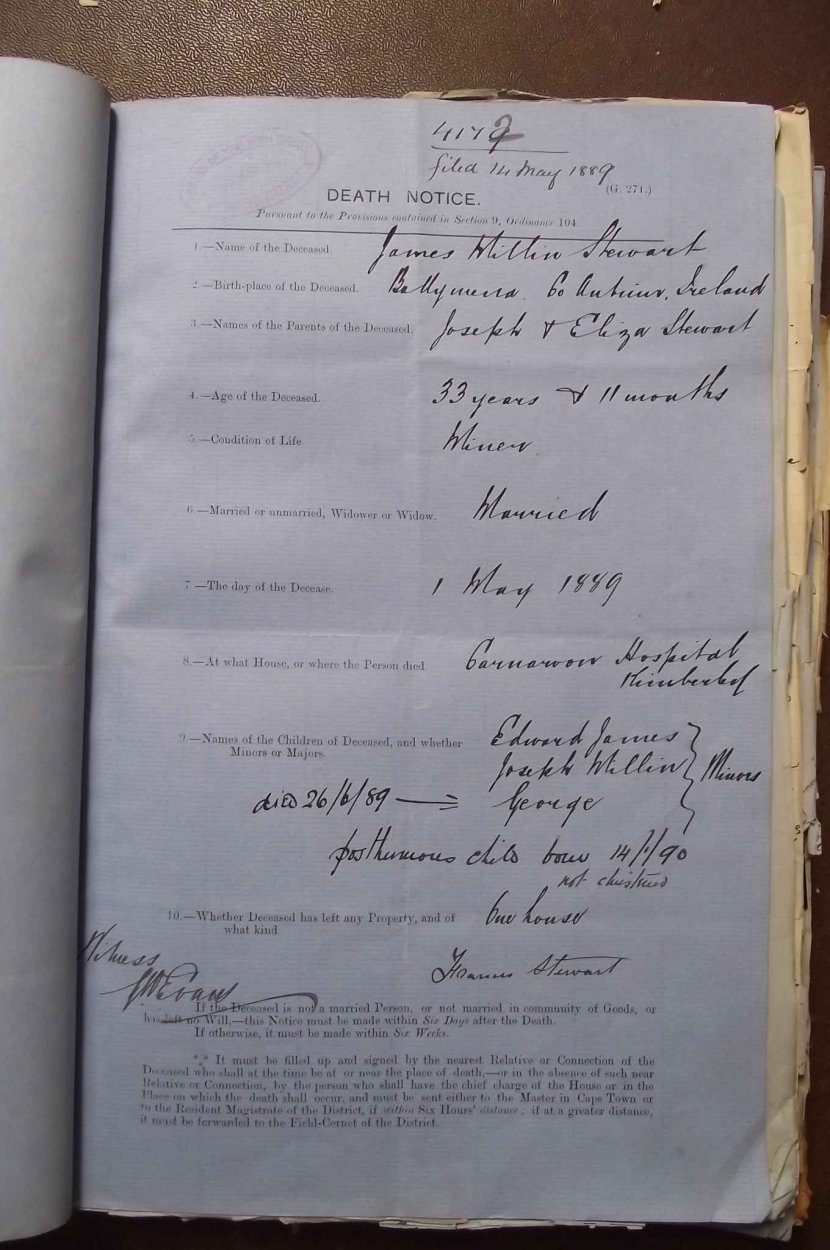 4179
filed 14 May 1889
(G. 271.)
DEATH NOTICE.
Pursuant to the Provisions contained in Section 9, Ordinance 104.
1.—Name of the Deceased. James Millin Stewart
2.—Birth-place of the Deceased. Ballymena. Co Antrim, Ireland
3.—Names of the Parents of the Deceased. Joseph & Eliza Stewart
4.—Age of the Deceased. 33 years & 11 months
5.—Condition of Life. Miner
6.—Married or unmarried, Widower or Widow. Married
7.—The day of the Decease. 1 May 1889
8.—At what House, or where the Person died. Carnarvon Hospital
Kimberley
9.—Names of the Children of Deceased, and whether Edward James
Minors or Majors. Joseph Millin Minors
died 26/6/89 — George
posthumous child born 14/1/90
not christened
10.—Whether Deceased has left any Property, and of One house
what kind
Witness Frances Stewart
Evans
If the Deceased is not a married Person, or not married in community of Goods, or
has left no Will,—this Notice must be made within Six Days after the Death.
If otherwise, it must be made within Six Weeks.
*** It must be filled up and signed by the nearest Relative or Connection of the
Deceased who shall at the time be at or near the place of death,—or in the absence of such near
Relative or Connection, by the person who shall have the chief charge of the House or in the
Place on which the death shall occur, and must be sent either to the Master in Cape Town or
to the Resident Magistrate of the District, if within Six Hours' distance; if at a greater distance,
it must be forwarded to the Field-Cornet of the District.